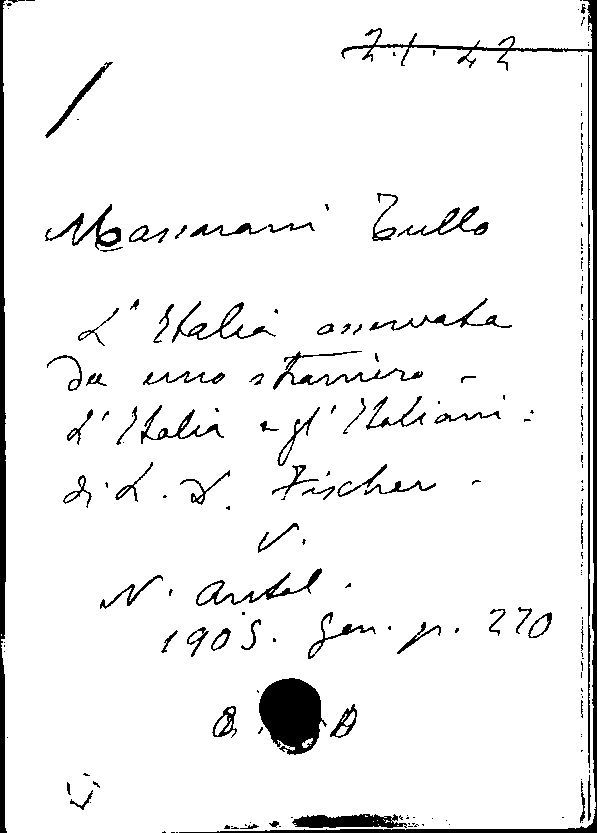 2.1.42
Massarani Tullo
L'Italia osservata
da uno straniero -
L'Italia e gl'Italiani:
di L. D. Fischer -
V.
N. Antol.
1905. Gen. p. 270